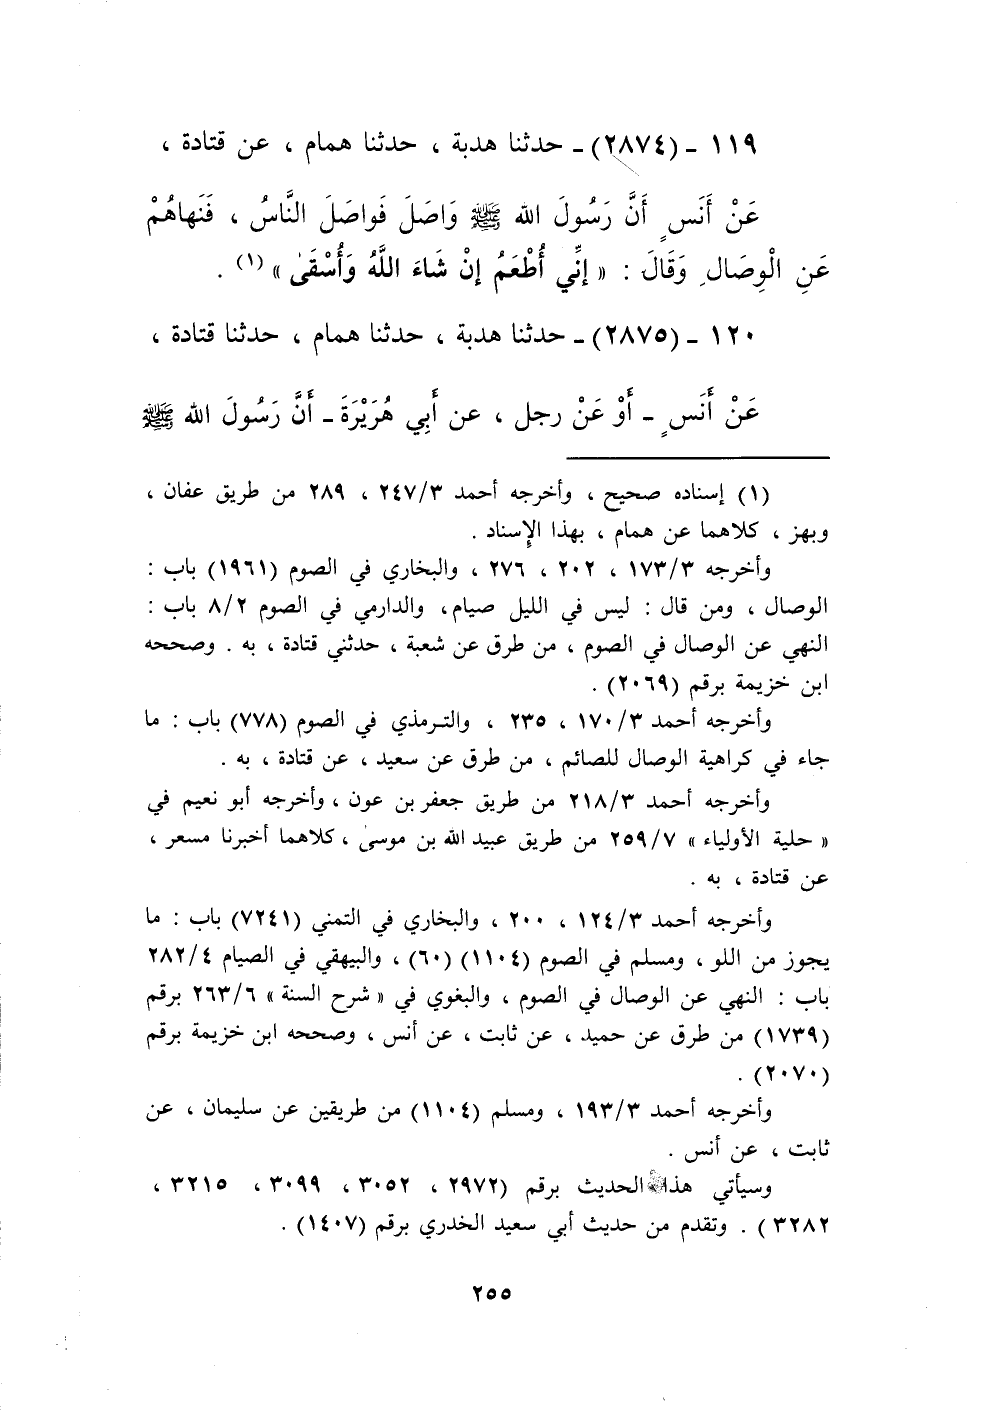 ١١٩ - (٢٨٧٤) - حدثنا هدبة ، حدثنا همام ، عن قتادة ،
عَنْ أَنَسٍ أَنَّ رَسُولَ الله ﷺ وَاصَلَ فَواصَلَ النَّاسُ ، فَنَهاهُمْ
عَنِ الْوِصَالِ وَقَالَ : « إنِّي أُطْعَمُ إنْ شَاءَ اللَّهُ وَأُسْقَىٰ »(١) .
١٢٠ - (٢٨٧٥) - حدثنا هدبة ، حدثنا همام ، حدثنا قتادة ،
عَنْ أَنَسٍ - أَوْ عَنْ رجل ، عن أَبِي هُرَيْرَةَ - أَنَّ رَسُولَ الله ﷺ
(١) إسناده صحيح ، وأخرجه أحمد ٢٤٧/٣ ، ٢٨٩ من طريق عفان ،
وبهز ، كلاهما عن همام ، بهذا الإسناد .
وأخرجه ١٧٣/٣ ، ٢٠٢ ، ٢٧٦ ، والبخاري في الصوم (١٩٦١) باب :
الوصال ، ومن قال : ليس في الليل صيام، والدارمي في الصوم ٨/٢ باب :
النهي عن الوصال في الصوم ، من طرق عن شعبة ، حدثني قتادة ، به . وصححه
ابن خزيمة برقم (٢٠٦٩) .
وأخرجه أحمد ١٧٠/٣ ، ٢٣٥ ، والترمذي في الصوم (٧٧٨) باب : ما
جاء في كراهية الوصال للصائم ، من طرق عن سعيد ، عن قتادة ، به .
وأخرجه أحمد ٢١٨/٣ من طريق جعفر بن عون ، وأخرجه أبو نعيم في
« حلية الأولياء » ٢٥٩/٧ من طريق عبيد الله بن موسىٰ ، كلاهما أخبرنا مسعر ،
عن قتادة ، به .
وأخرجه أحمد ١٢٤/٣ ، ٢٠٠ ، والبخاري في التمني (٧٢٤١) باب : ما
يجوز من اللو ، ومسلم في الصوم (١١٠٤) (٦٠) ، والبيهقي في الصيام ٢٨٢/٤
باب : النهي عن الوصال في الصوم ، والبغوي في « شرح السنة » ٢٦٣/٦ برقم
(١٧٣٩) من طرق عن حميد ، عن ثابت ، عن أنس ، وصححه ابن خزيمة برقم
(٢٠٧٠) .
وأخرجه أحمد ١٩٣/٣ ، ومسلم (١١٠٤) من طريقين عن سليمان ، عن
ثابت ، عن أنس .
وسيأتي هذا الحديث برقم (٢٩٧٢ ، ٣٠٥٢ ، ٣٠٩٩ ، ٣٢١٥ ،
٣٢٨٢) . وتقدم من حديث أبي سعيد الخدري برقم (١٤٠٧) .
٢٥٥